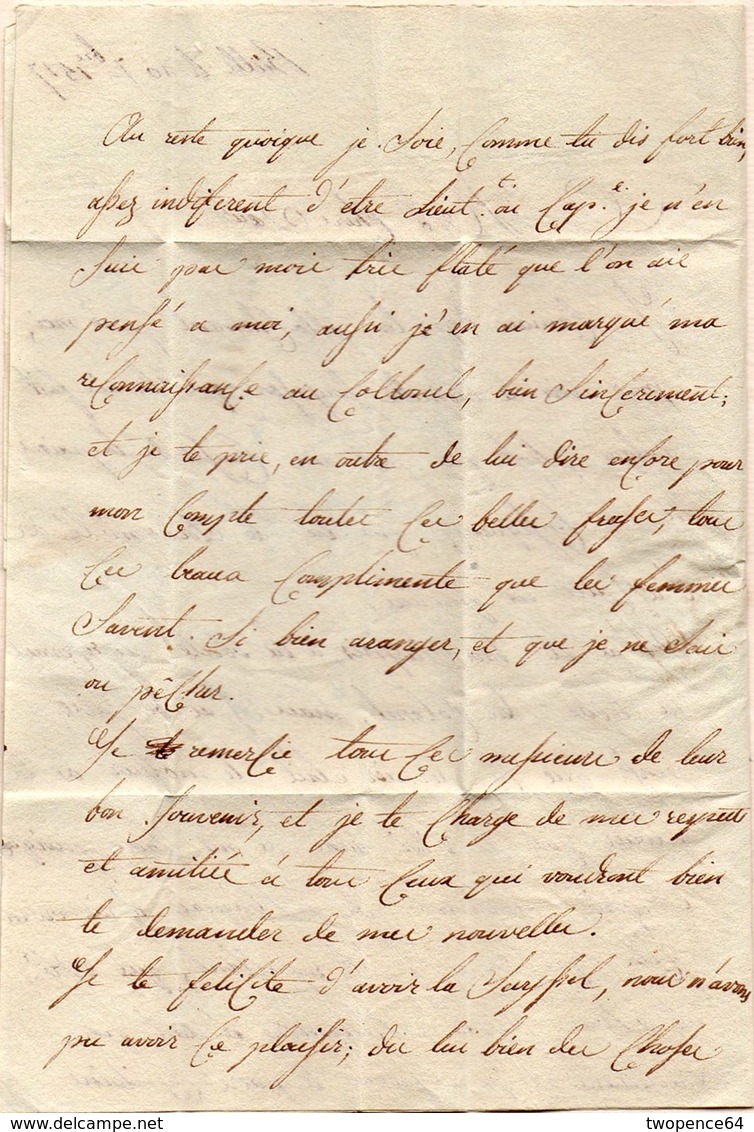 Au reste quoique je sois, comme tu dis fort bien,
assez indiferent d'etre Lieut.t ou Cap.e je n'en
suis pas mois tris flaté que l'on aie
pensé a moi, aussi j'en ai marqué ma
reconnaissance au Collonel, bien sincerement;
et je te prie, en outre de lui dire encore pour
mon compte toutes ces belles frases, tous
ces beaux compliments que les femmes
savent si bien aranger, et que je ne sais
ou pêcher.
Je remercie tous ces messieurs de leur
bon souvenir, et je te charge de mes respects
et amitiés à tous ceux qui voudront bien
te demander de mes nouvelles.
Je te felicite d'avoir la, nous n'avons
pu avoir ce plaisir; dis lui bien des choses
twopence64